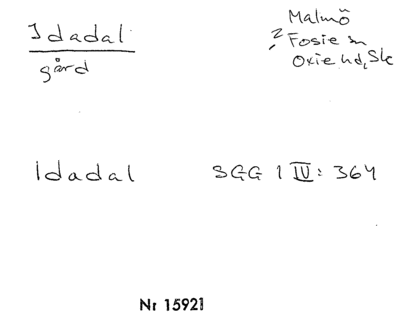 Idadal
gård
Malmö
? Fosie sn
Oxie hd, Sk
Idadal SGG 1 IV: 364
Nr 15921